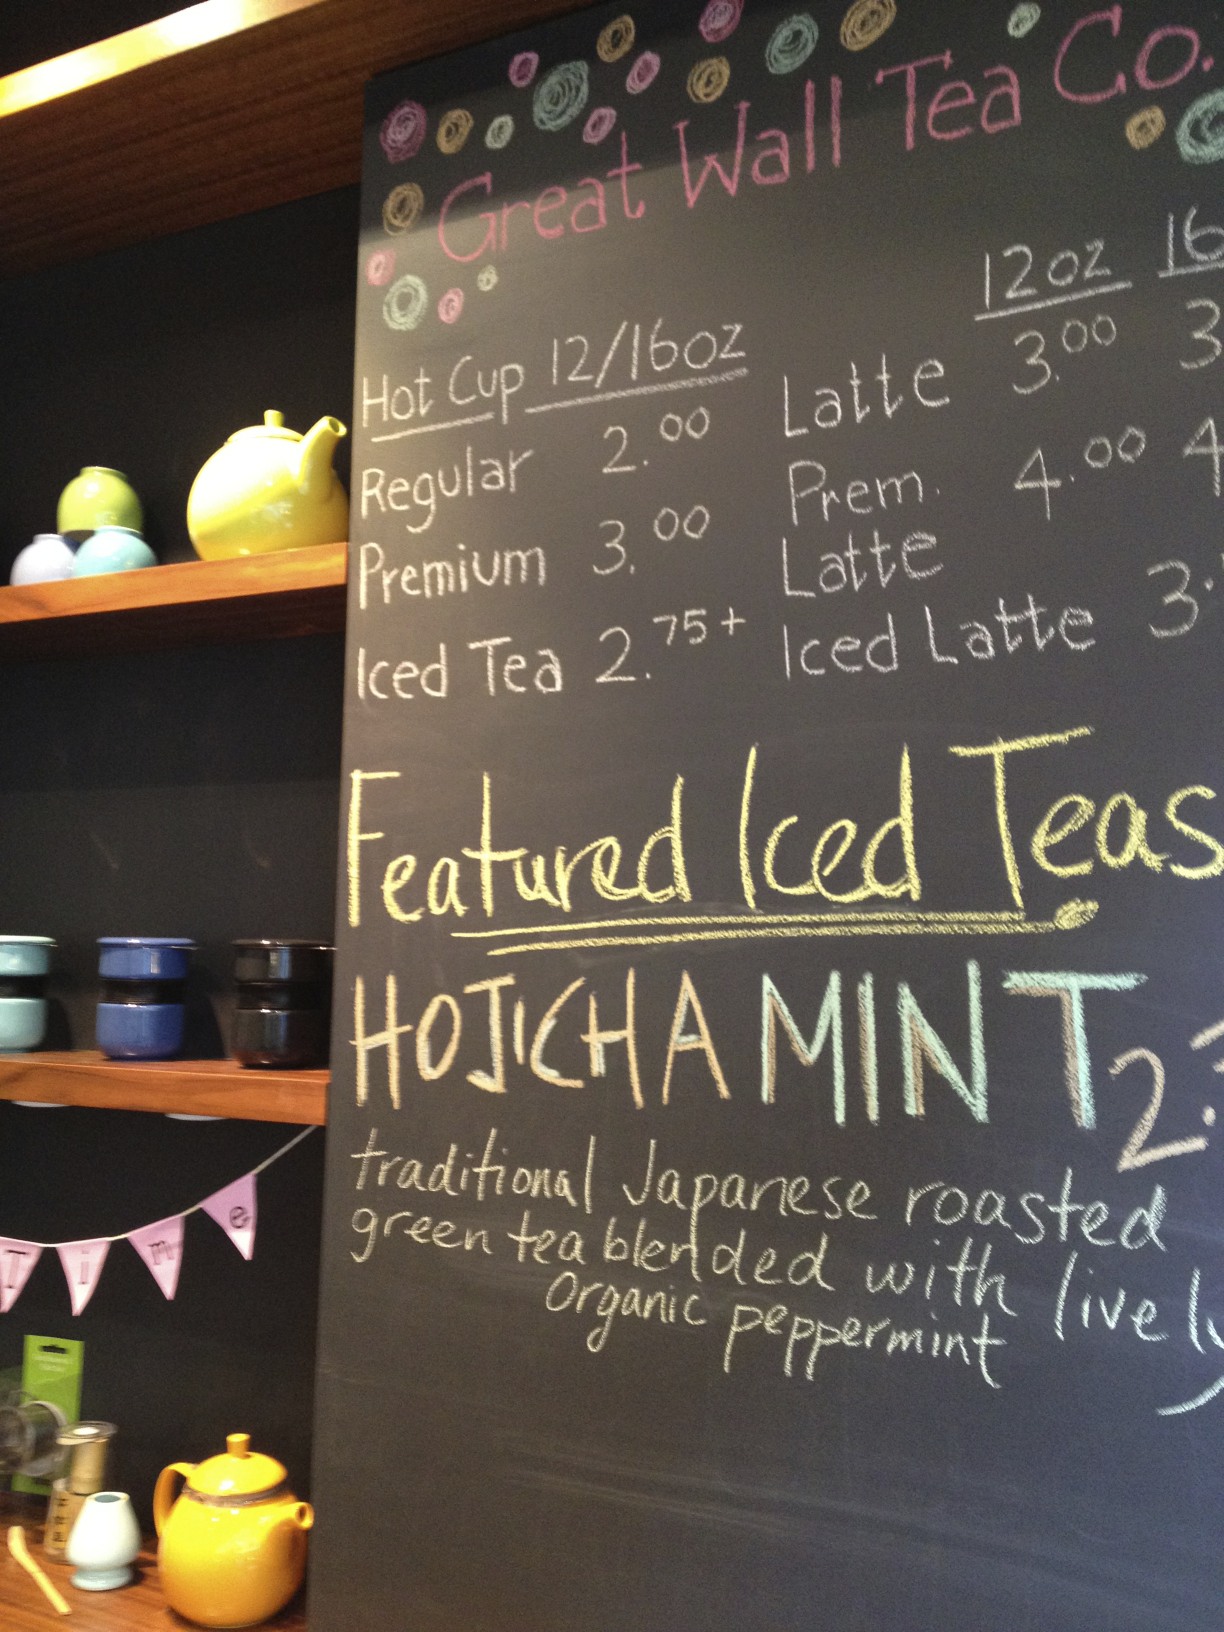 Great Wall Tea Co.
12oz 16
Hot Cup 12/16oz
Latte 3.00 3
Regular 2.00
Prem. 4.00 4
Latte
Premium 3.00
Iced Latte 3.
Iced Tea 2.75+
Featured Iced Teas
HOJICHA MINT 2.
traditional Japanese roasted
green tea blended with lively
Organic peppermint
Time